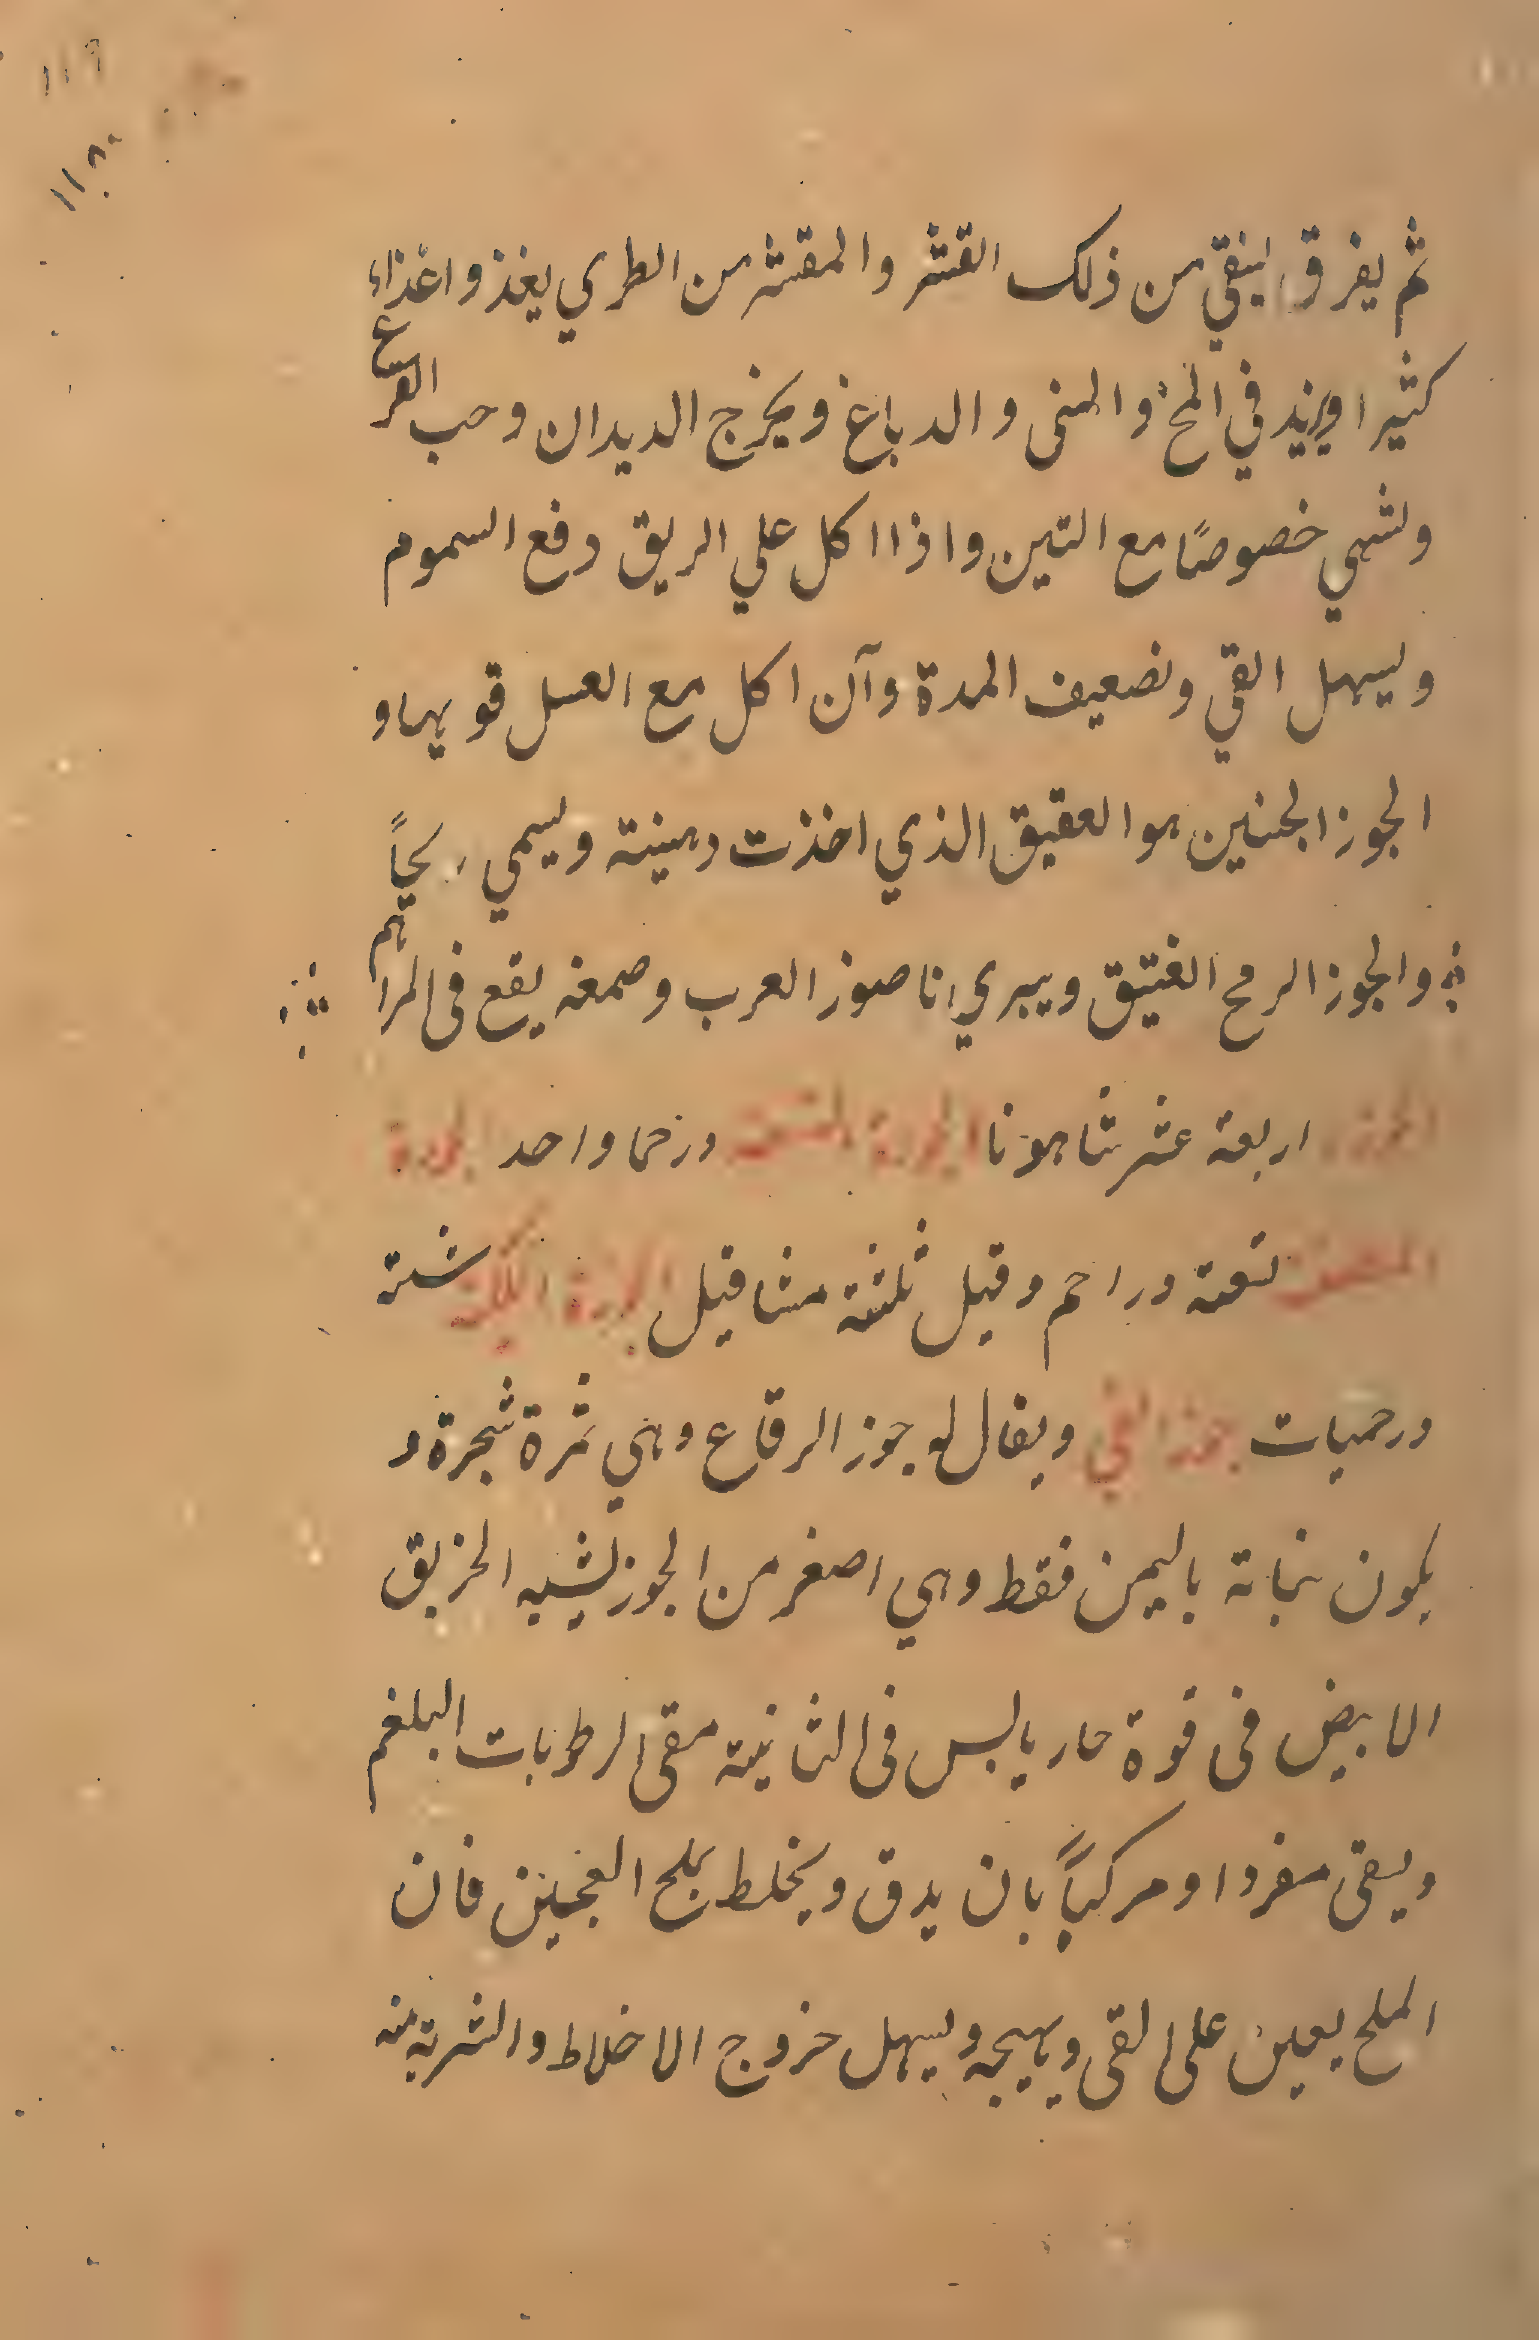 ١١٩
١١٨
ثم يفرق ينقي من ذلك القشر والمقشر من الطري يغذوا غذاء
كثيرا ويزيد في المخ والمنى والدباغ ويخرج الديدان وحب القرع
ولشهي خصوصًا مع التين واذا اكل علي الريق دفع السموم
وليسهل القي ونضعيف المدة وآن اكل مع العسل قويها و
الجوز الجنين هو العقيق الذي اخذت دهينة وليسمي ريحًا
والجوز الرمح الغتيق ويبري اناصوز العرب وصمغه يقع فى المراهم
الجوزة اربعة عشر شاهونا الجوزة ورخما واحد الجوزة
تسعة دراحم وقيل ثلثة مثاقيل الجوزة الملكية ستة
ورحميات جوز القي ويقال له جوز الرقاع وهي ثمرة شجرة و
يكون نباتة باليمن فقط وهي اصغر من الجوز لشبه الخربق
الابيض فى قوة حار يابس فى الثانية مقى لرطوبات البلغم
وليقى مفردا ومركباً بان يدق ويخلط بملح العجين فان
الملح يعين على القى ويهيجه وليسهل خروج الاخلاط والشربة منه